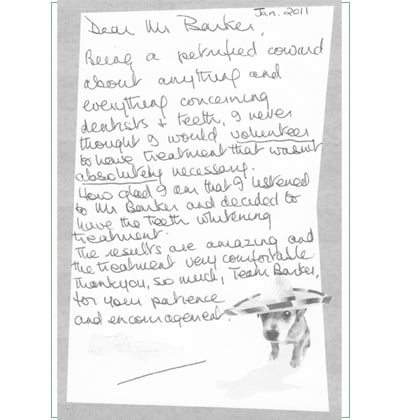 Jan. 2011
Dear Mr Barker,
Being a petrified coward
about anything and
everything concerning
dentists + teeth, I never
thought I would volunteer
to have treatment that wasn't
absolutely necessary.
How glad I am that I listened
to Mr Barker and decided to
have the teeth whitening
treatment.
The results are amazing and
the treatment very comfortable
Thankyou, so much, Team Barker,
for your patience
and encouragement.